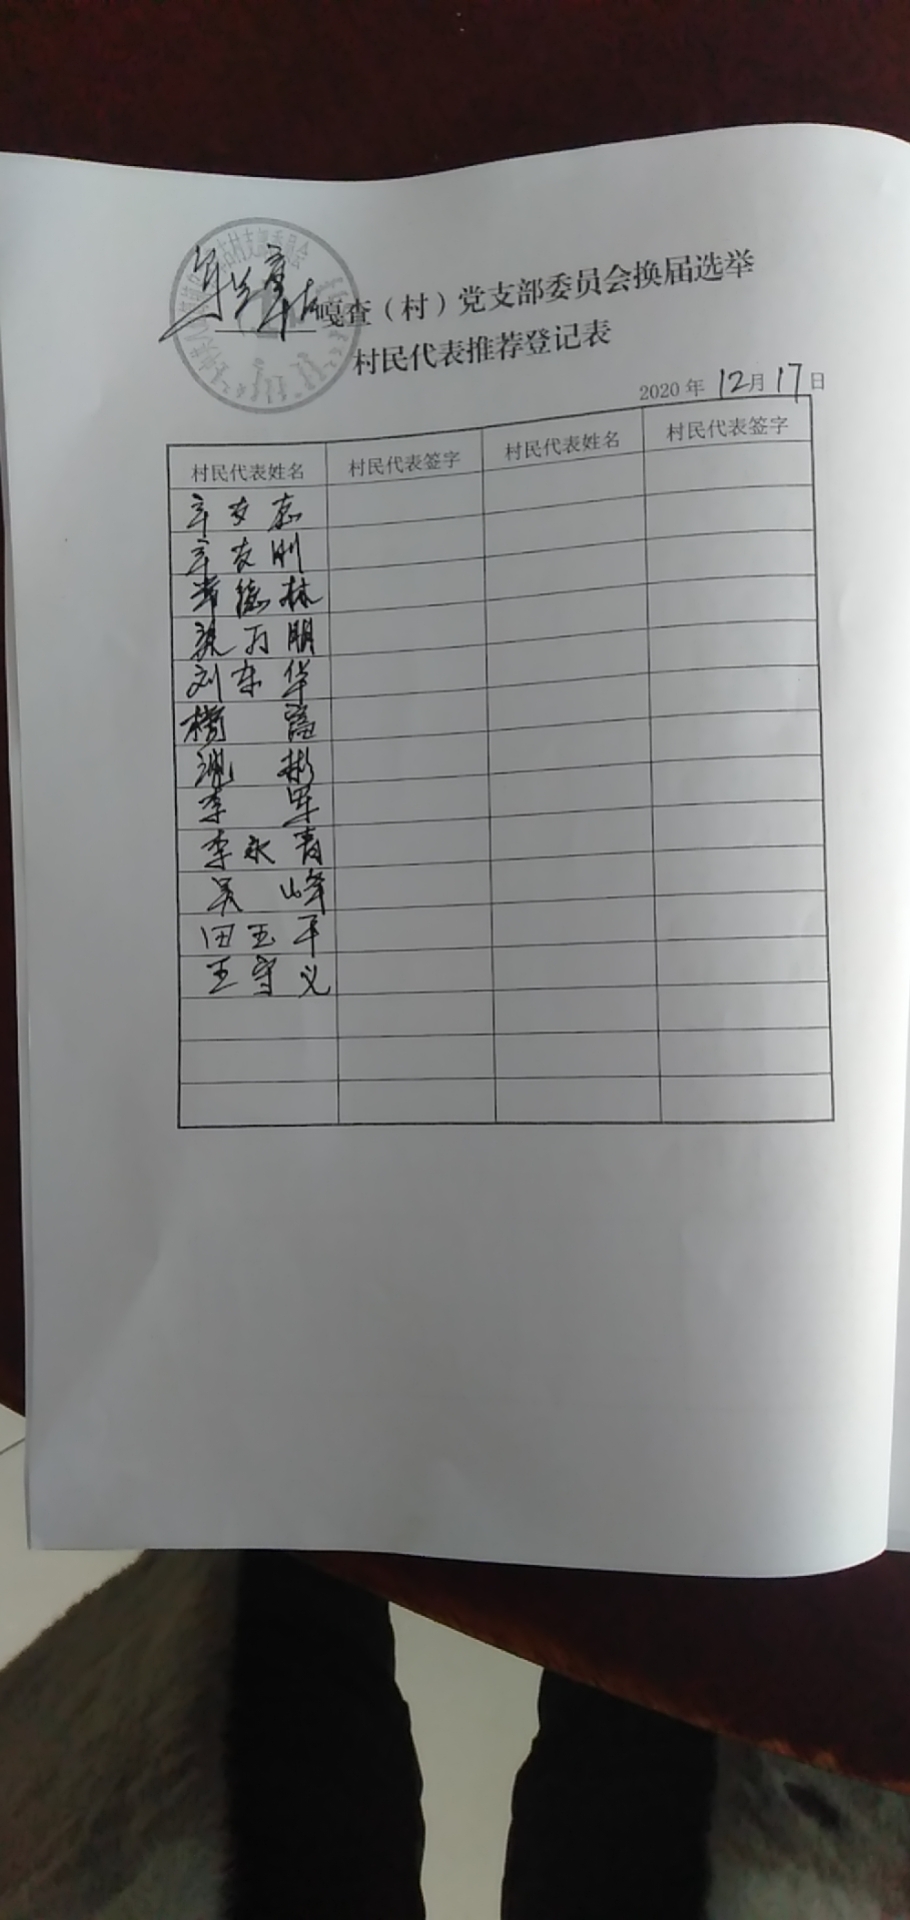 嘎查（村）党支部委员会换届选举
村民代表推荐登记表
2020年12月17日
村民代表姓名 村民代表签字 村民代表姓名 村民代表签字
辛友志
辛友刚
常德林
万朋
刘东华
杨富
彬
李军
李永青
吴峰
田玉平
王守义